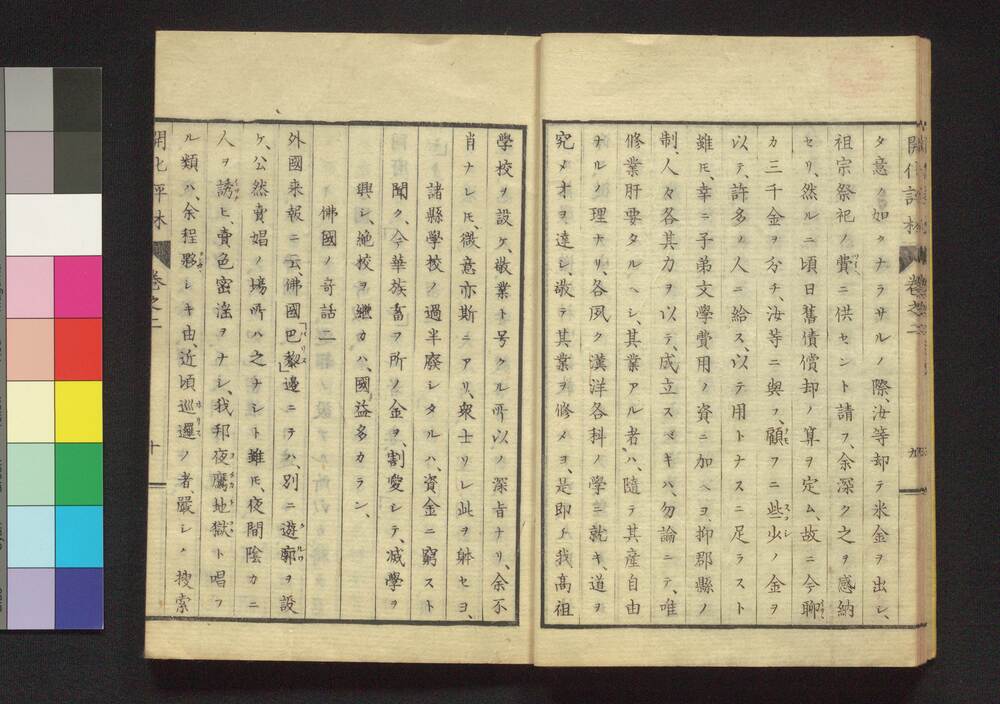 開化評林 卷之二 九
タ意ノ如クナラサルノ際、汝等却テ米金ヲ出シ、
祖宗祭祀ノ費ニ供セント請フ、余深ク之ヲ感納
セリ、然ルニ頃日舊債償却ノ算ヲ定ム、故ニ今聊
カ三千金ヲ分チ、汝等ニ與フ、顧フニ些少ノ金ヲ
以テ、許多ノ人ニ給ス、以テ用トナスニ足ラスト
雖𪜈、幸ニ子弟文學費用ノ資ニ加ヘヨ、抑郡縣ノ
制、人々各其力ヲ以テ、成立スベキハ、勿論ニテ、唯
修業肝要タルヘシ、其業アル者ハ、隨テ其産自由
ナルノ理ナリ、各夙ク漢洋各科ノ學ニ就キ、道ヲ
究メ才ヲ達シ、敬テ其業ヲ修メヨ、是即チ我高祖
學校ヲ設ケ、敬業ト号クル所以ノ深旨ナリ、余不
肖ナレ𪜈、微意亦斯ニアリ、衆士ソレ此ヲ躰セヨ、
諸縣學校ノ過半廢シタルハ、資金ニ窮スト
聞ク、今華族畜フ所ノ金ヲ、割愛シテ、減學ヲ
興シ、絶校ヲ繼カハ、國益多カラン、
佛國ノ奇話二
外國来報ニ云、佛國巴黎邊ニテハ、別ニ遊廓ヲ設
ケ、公然賣娼ノ場所ハ之ナシト雖𪜈、夜間陰カニ
人ヲ誘ヒ、賣色密淫ヲナシ、我邦夜鷹地獄ト唱フ
ル類ハ、余程夥シキ由、近頃巡邏ノ者、嚴シク搜索
開化評林 卷之二 十